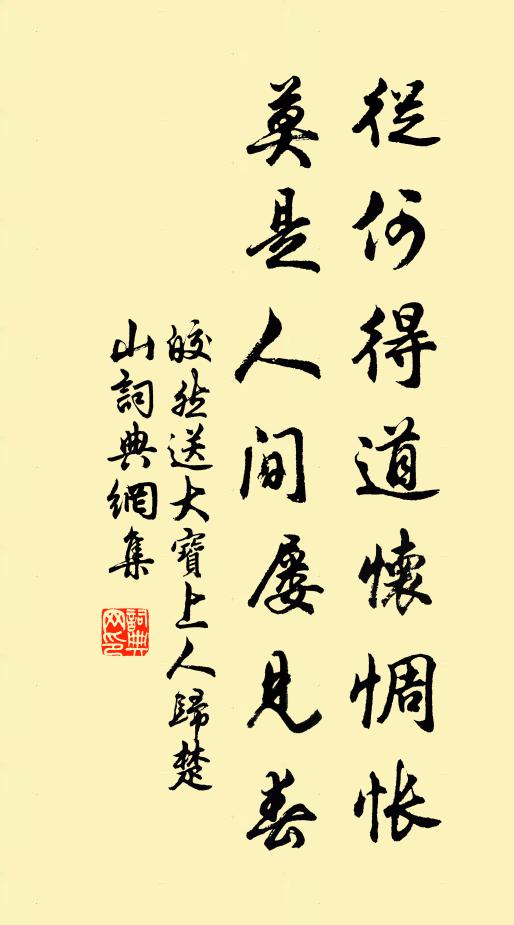 從何得道懷惆悵
莫是人間屡見春
皎然送大寶上人歸楚
山詞典網集
詞典网印